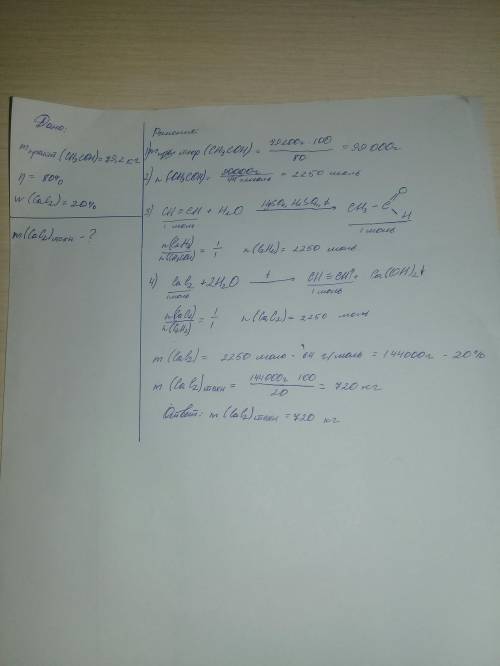 Дано:
m практ (CH₃COH) = 79,2 кг
η = 80%
w (CaC₂) = 20%
m(CaC₂) техн - ?
Решение:
1) m теор (CH₃COH) = 79200г · 100 / 80 = 99000г
2) n (CH₃COH) = 99000г / 44 г/моль = 2250 моль
3) CH ≡ CH + H₂O HgSO₄, H₂SO₄, t → CH₃ - C O H
1 моль 1 моль
n(C₂H₂) / n(CH₃COH) = 1 / 1 n(C₂H₂) = 2250 моль
4) CaC₂ + 2H₂O t → CH ≡ CH↑ + Ca(OH)₂↓
1 моль 1 моль
n(CaC₂) / n(C₂H₂) = 1 / 1 n(CaC₂) = 2250 моль
m (CaC₂) = 2250 моль · 64 г/моль = 144000г - 20%
m (CaC₂) техн = 144000г · 100 / 20 = 720 кг
Ответ: m (CaC₂) техн = 720 кг